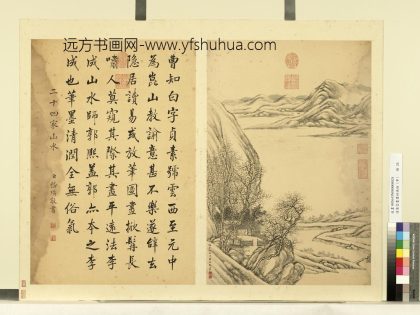 远方书画网-www.yfshuhua.com
曹知白字貞素號雲西至元中
為崑山教諭意甚不樂遂辭去
隱居讀易或放筆圖畫掀髯長
嘯人莫窺其際其畫平遠法李
成山水師郭熙蓋郭亦本之李
成也筆墨清潤全無俗氣
二十四家山水